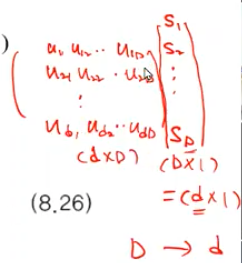 )
u₁₁ u₁₂ ·· u₁D
u₂₁ u₂₂ · u₂D
⋮
u_d₁ u_d₂ ·· u_dD
(d×D)
S₁
S₂
⋮
S_D
(D×1)
= (d×1)
(8.26)
D → d